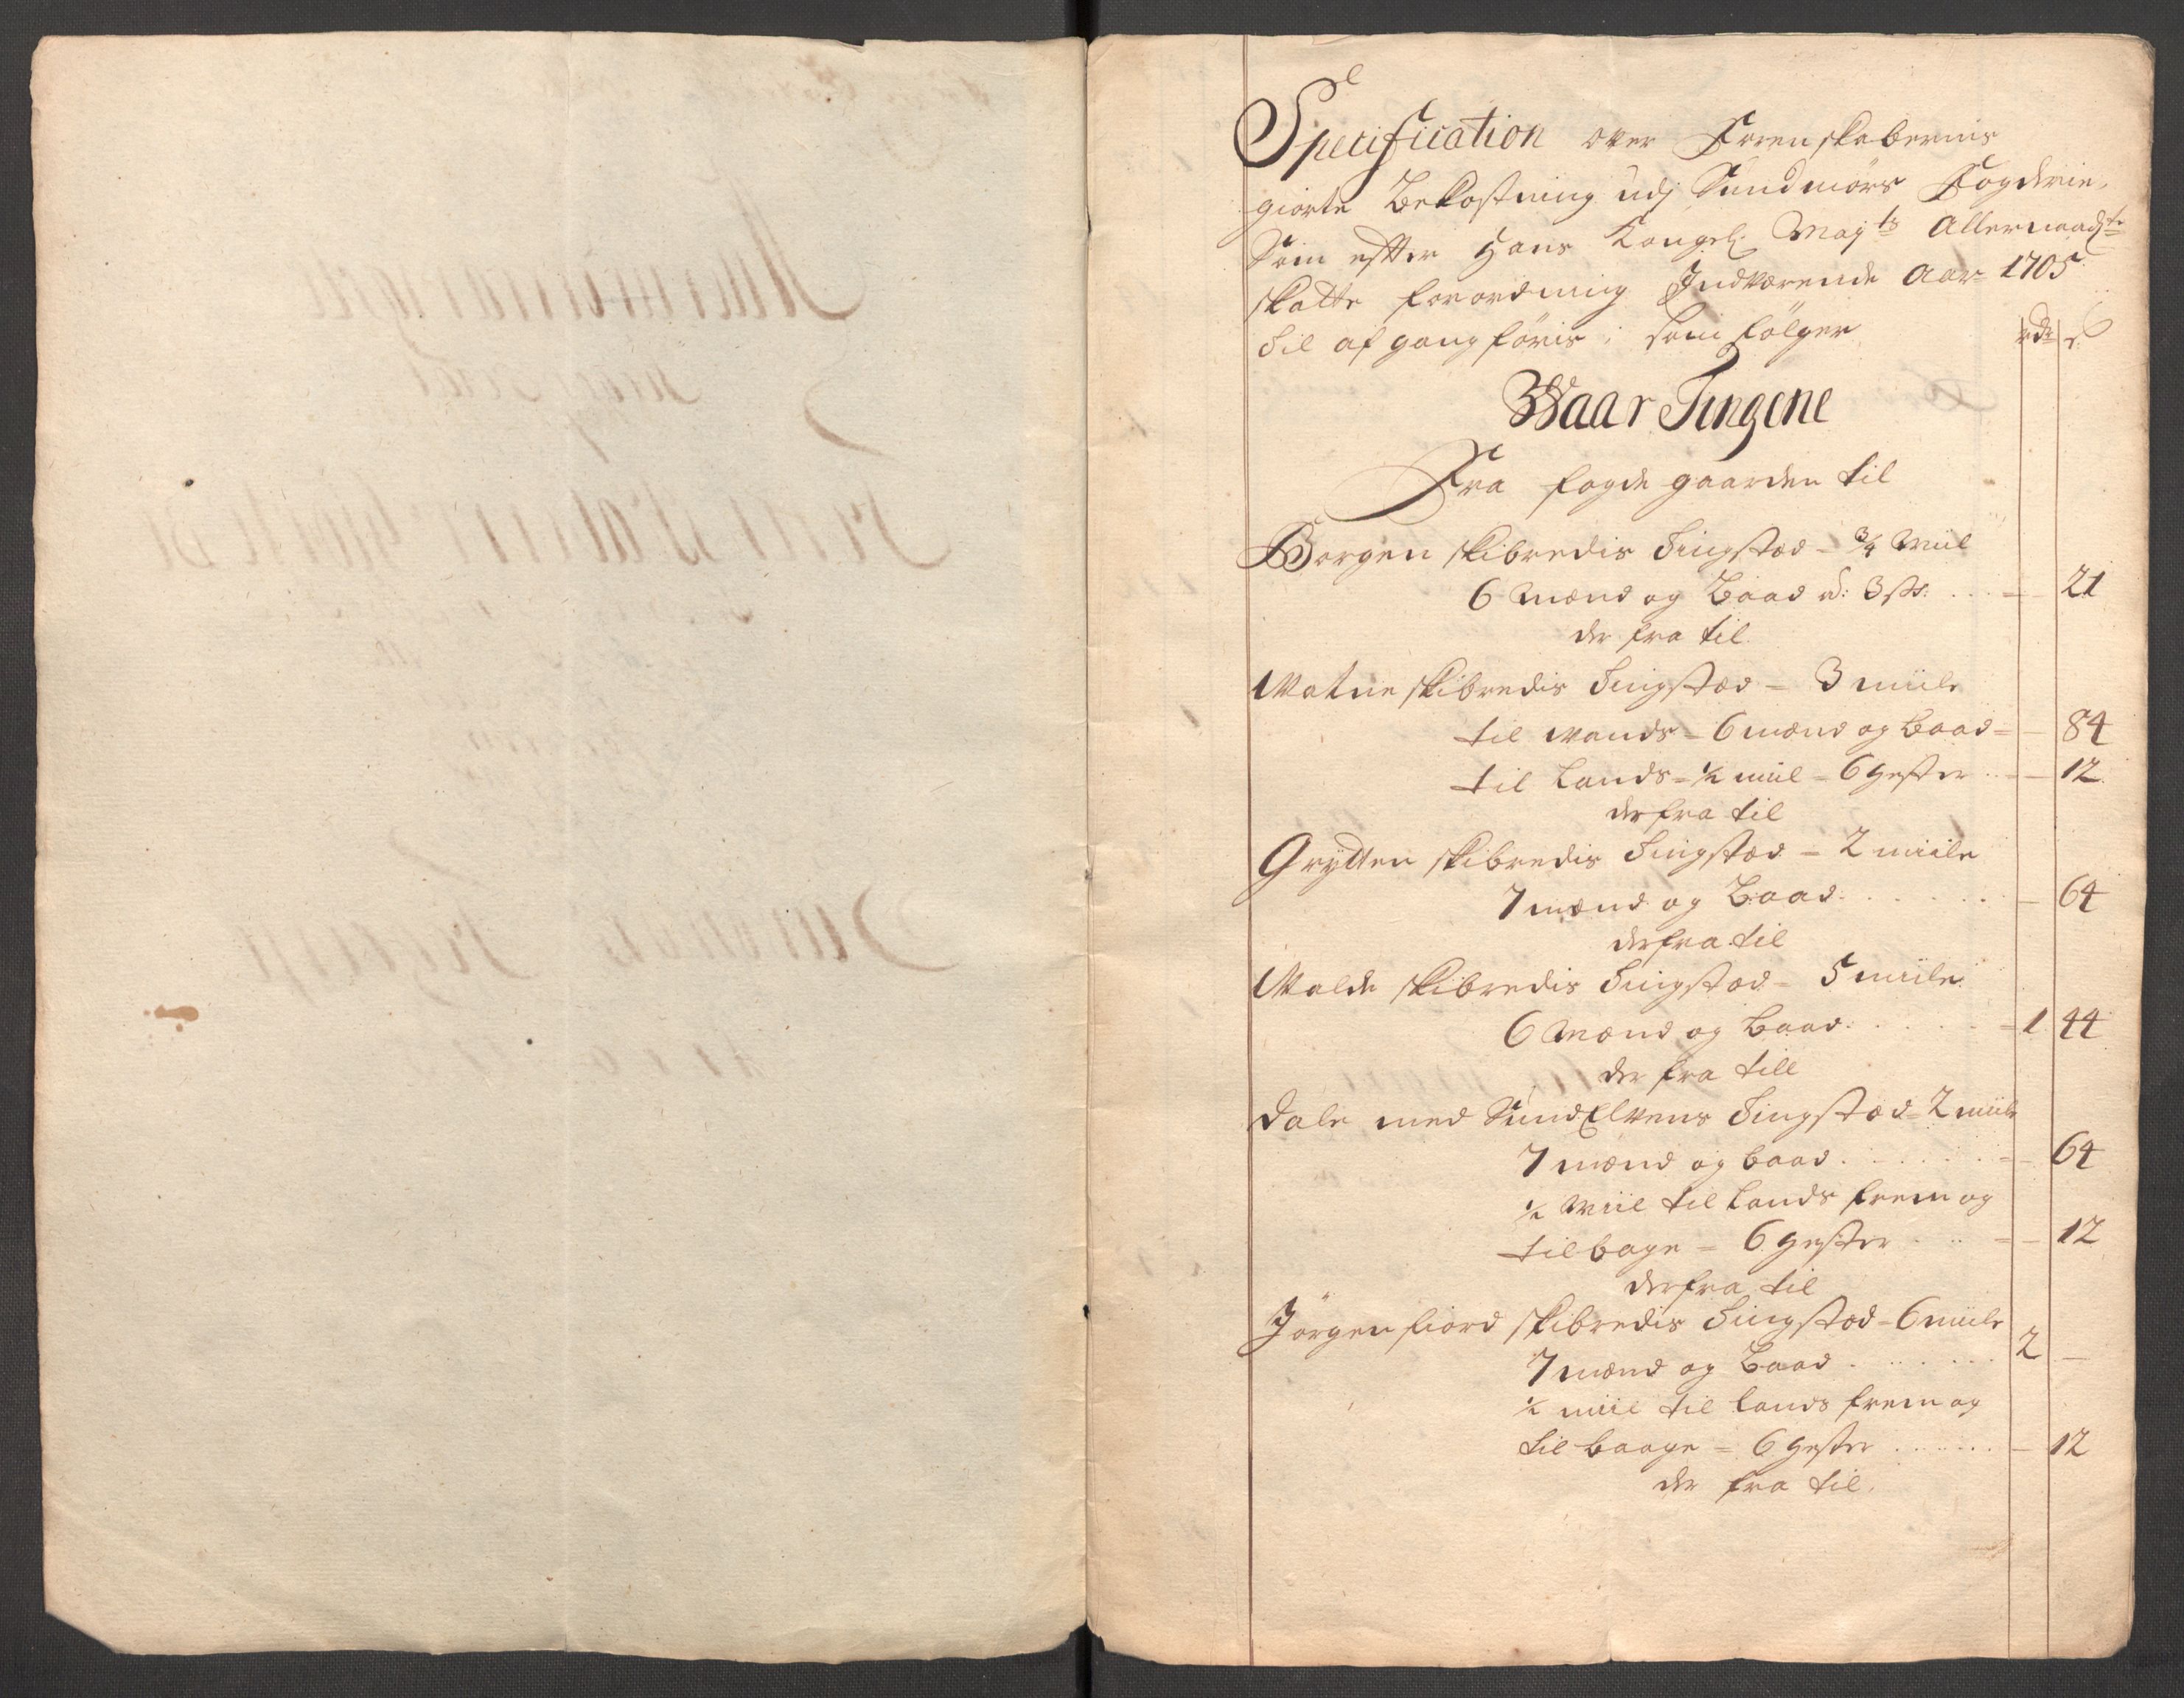 Specification over Foren skabernis
giorte Bekostning udj Sundmørs Fogderie,
Som efter Hans Kongel: Mayts Allernaadste
skatte forordning Indværende Aar 1705
Til af gang føris, som følger
rdr s
Waar Tingene
Fra fogde gaarden til
Borgen skibredis Tingstæd - 3/4 Miil
6 Mænd og Baad a: 3 s: . . . — 21
der fra til
Watne skibredis Tingstæd - 3 miile
til wands - 6 mænd og baad = — 84
til Lands - 1/2 miil - 6 hester . . — 12
derfra til
Grytten skibredis Tingstæd - 2 miile
7 mænd og Baad . . . . . . — 64
derfra til
Walde skibredis Tingstæd - 5 miile
6 Mænd og baad . . . . . = 1 44
der fra till
Dale med SundElvens Tingstæd - 2 miile
7 mænd og baad . . . . . . — 64
1/2 Miil til Lands frem og
tilbage = 6 hester . . . = — 12
derfra til
Jørgenfiord skibredis Tingstæd - 6 miile
7 mænd og Baad . . . . . . 2 —
1/2 miil til lands frem og
til baage = 6 hester . . . . . . — 12
der fra til